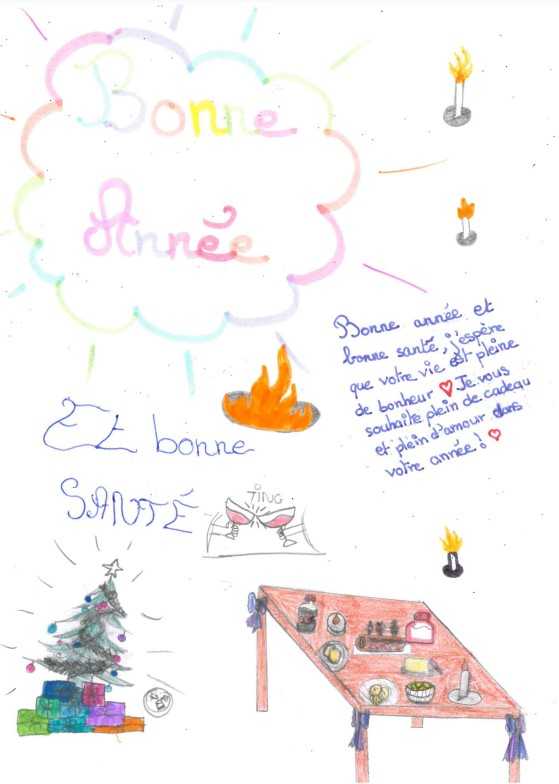 Bonne
Année
Bonne année et
bonne santé, j'espère
que votre vie est pleine
de bonheur Je vous
souhaite plein de cadeau
et plein d'amour dans
votre année!
Et bonne
SANTÉ
TING